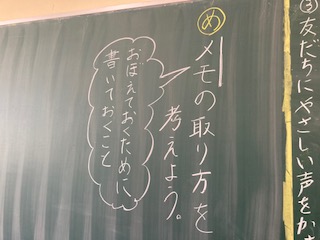 ③友だちにやさしい声をか
め
メモの取り方を
考えよう。
おぼえておくために
書いておくこと